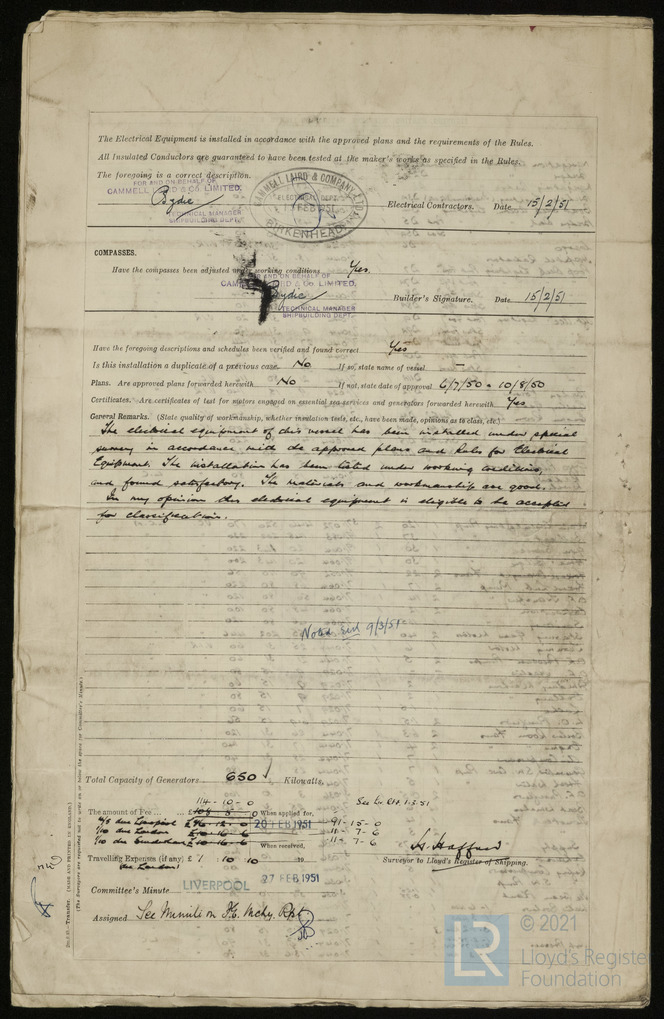 The Electrical Equipment is installed in accordance with the approved plans and the requirements of the Rules.
All Insulated Conductors are guaranteed to have been tested at the maker's works as specified in the Rules.
The foregoing is a correct description.
FOR AND ON BEHALF OF
CAMMELL LAIRD & CO. LIMITED.
TECHNICAL MANAGER
SHIPBUILDING DEPT.
CAMMELL LAIRD & COMPANY LTD.
ELECTRICAL DEPT.
FEB 1951
BIRKENHEAD
Electrical Contractors. Date 15/2/51
COMPASSES.
Have the compasses been adjusted under working conditions Yes
FOR AND ON BEHALF OF
CAMMELL LAIRD & CO. LIMITED.
TECHNICAL MANAGER
SHIPBUILDING DEPT.
Builder's Signature. Date 15/2/51
Have the foregoing descriptions and schedules been verified and found correct Yes
Is this installation a duplicate of a previous case No If so, state name of vessel —
Plans. Are approved plans forwarded herewith No If not, state date of approval 6/7/50 10/8/50
Certificates. Are certificates of test for motors engaged on essential sea-services and generators forwarded herewith Yes
General Remarks. (State quality of workmanship, whether insulation tests, etc., have been made, opinions as to class, etc.)
The electrical equipment of this vessel has been installed under special
survey in accordance with the approved plans and Rules for Electrical
Equipment. The installation has been tested under working conditions,
and found satisfactory. The materials and workmanship are good.
In my opinion this electrical equipment is eligible to be accepted
for classification.
Noted 9/3/51
Total Capacity of Generators 650 Kilowatts.
114-10-0
The amount of Fee ... £ When applied for,
20 FEB 1951
91-15-0
11-7-6
11-7-6
When received,
Travelling Expenses (if any) £ 1 : 10 : 10
Surveyor to Lloyd's Register of Shipping.
Committee's Minute LIVERPOOL 27 FEB 1951
Assigned See Minute on F.E. Mchy. Rpt
(The Surveyors are requested not to write on or below the space for Committee's Minute.)
Transfer. (MADE AND PRINTED IN ENGLAND.)
LR
© 2021
Lloyd's Register
Foundation